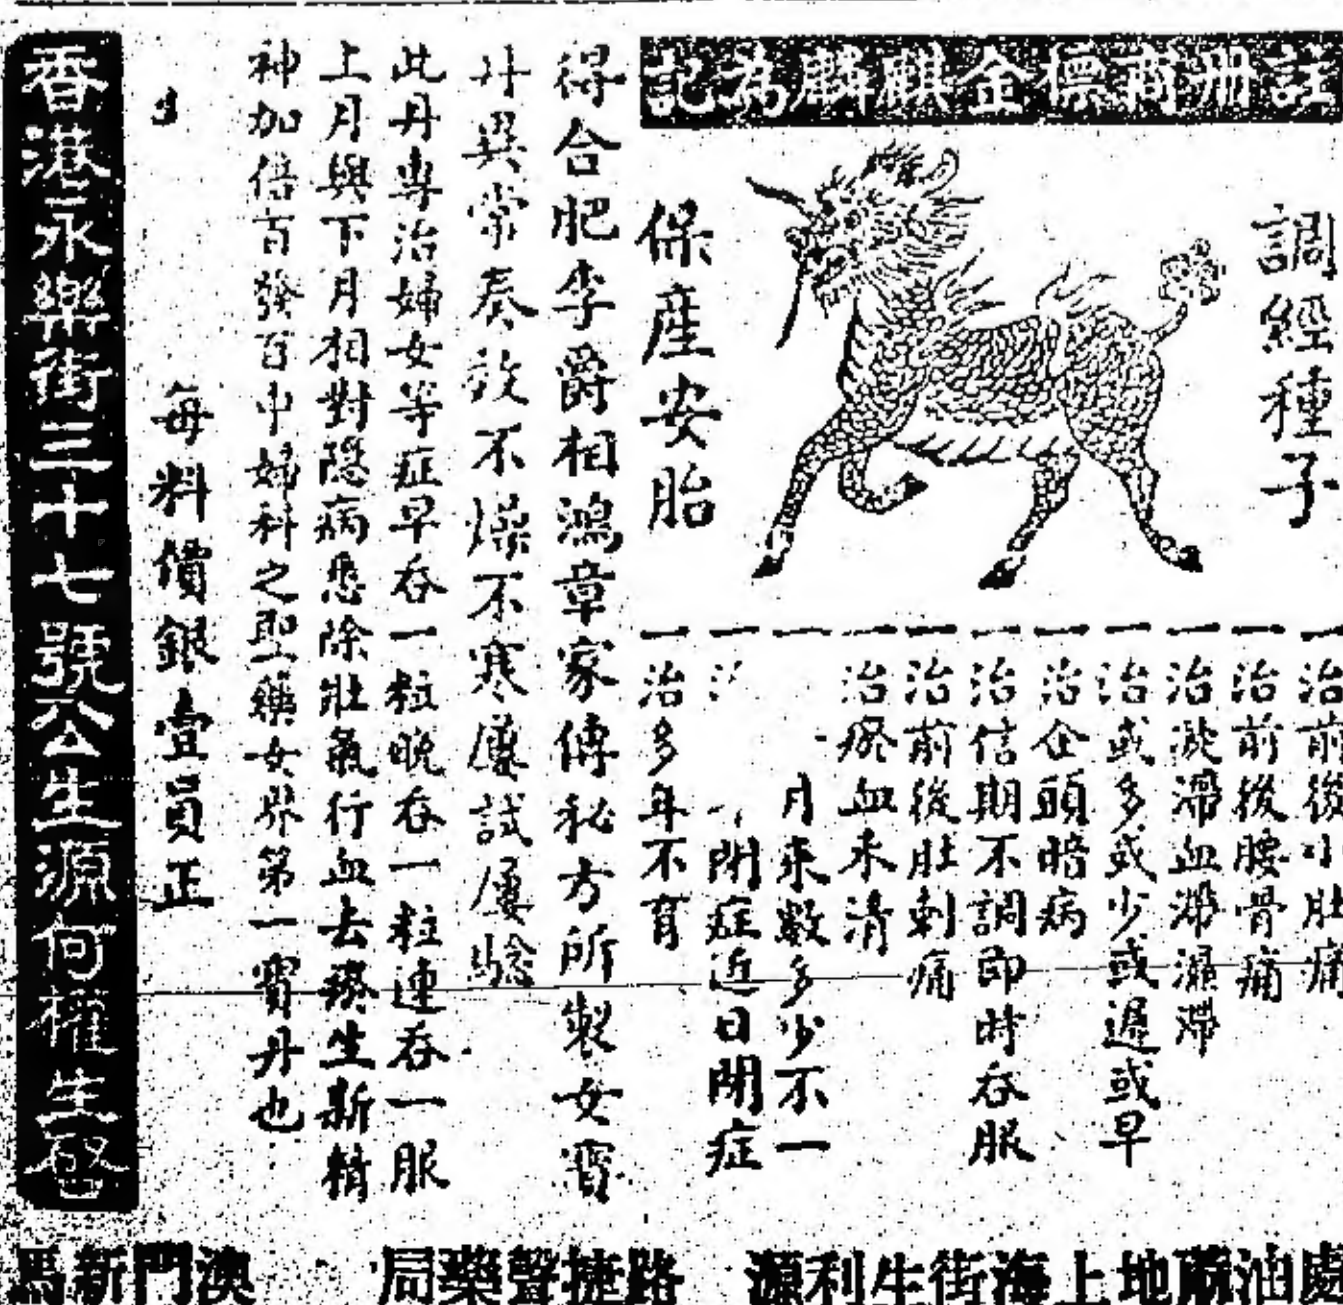 註冊商標金麒麟為記
調經種子
保產安胎
一治前後小肚痛
一治前後腰骨痛
一治淤滯血滯濕滯
一治或多或少或遲或早
一治企頭暗病
一治信期不調即時吞服
一治前後肚刺痛
一治瘀血未清
一月來數多少不一
一治閉症近日閉症
一治多年不育
得合肥李爵相鴻章家傳秘方所製女寶
丹異常奏效不燥不寒屢試屢驗
此丹專治婦女等症早吞一粒晚吞一粒連吞一服
上月與下月相對隱病悉除壯氣行血去瘀生新精
神加倍百發百中婦科之聖藥女界第一寶丹也
每料價銀壹員正
香港永樂街三十七號公生源何權生啓
處油蔴地上海街生利源
路捷聲藥局
澳門新馬